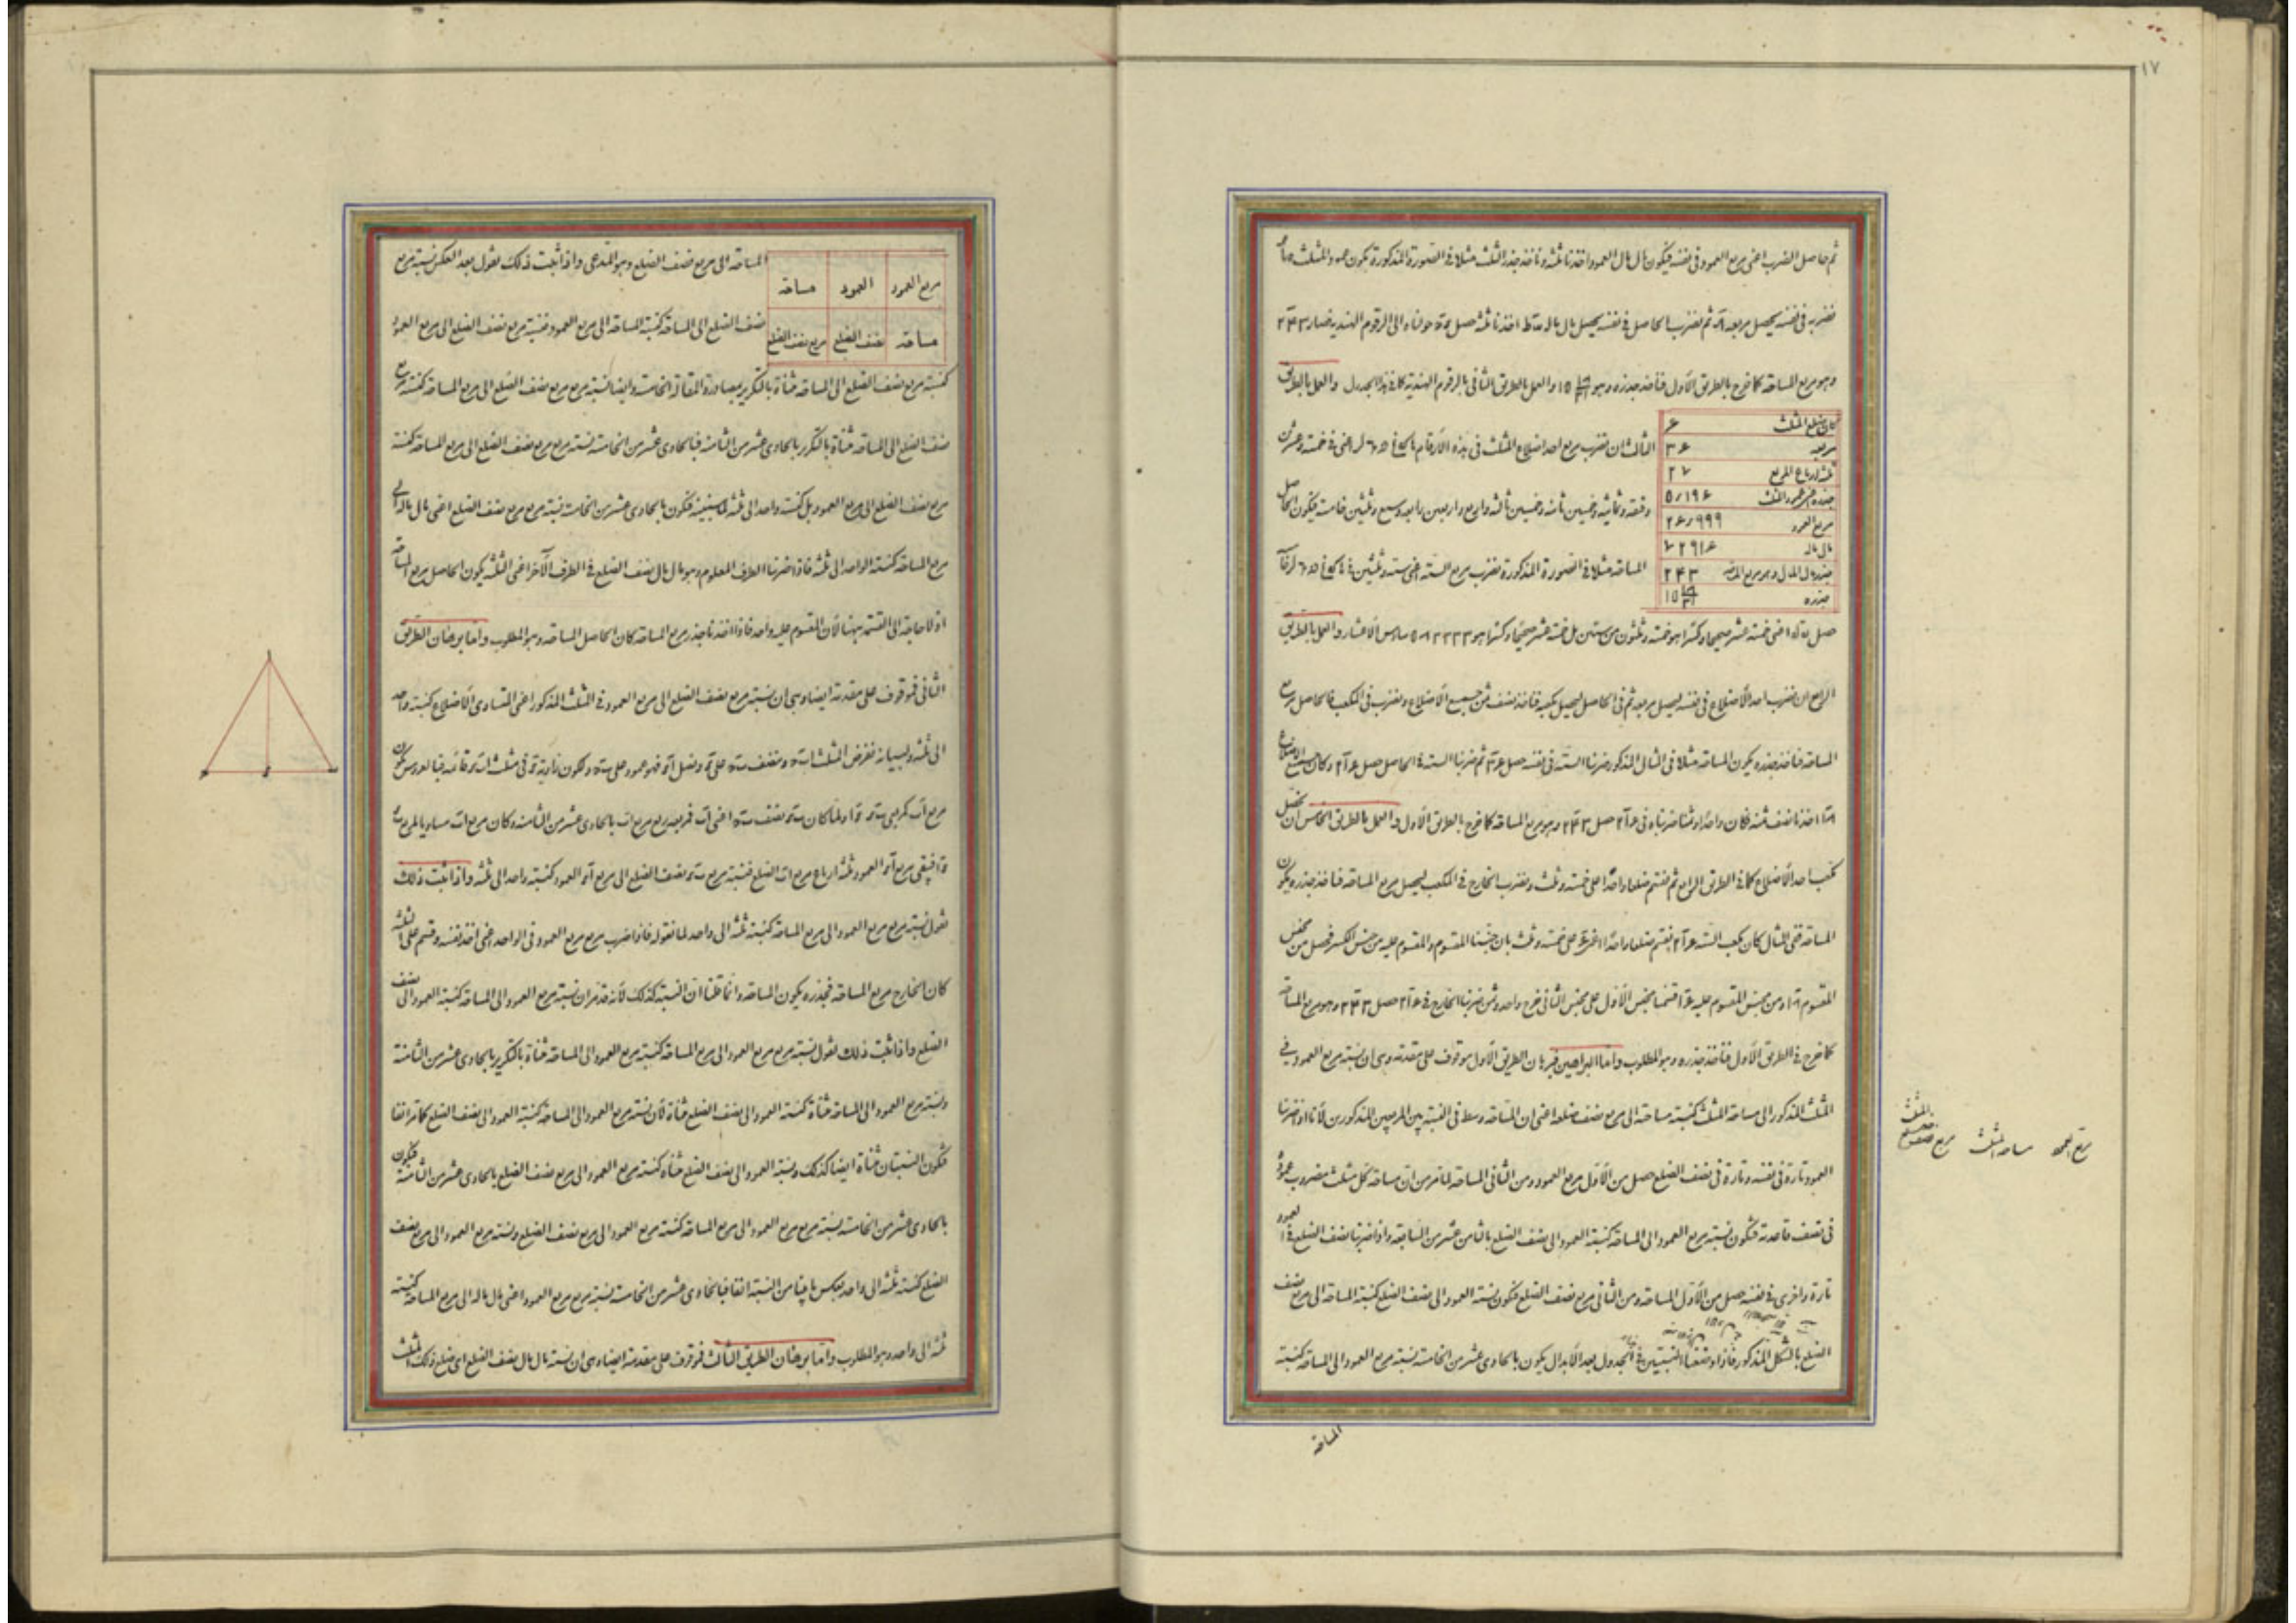 ١٧
ثم حاصل الضرب اعنى مربع العمود فى نفسه فيكون مال مال العمود اخذنا ثلثه وناخذ جذر الثلث مثلا فى الصورة المذكورة يكون عمود المثلث
نضربه فى نفسه يحصل مربعه ثم نضرب الحاصل فى نفسه يحصل مال ماله اخذنا ثلثه حصل حولناه الى الرقوم الهنديه فصار ٢٤٣
وهو مربع المساحه كما خرج بالطريق الاول فناخذ جذره وهو ١٥ والعمل بالطريق الثانى بالرقوم الهندية كما فى هذا الجدول والعمل بالطريق
كان ضلع المثلث ۶
مربعه ٣۶
ثلثه ارباع المربع ٢٧
جذره اعنى عمود المثلث ۵/١٩۶
مربع العمود ٢۶/٩٩٩
مال ماله ٧٢٩١۶
جذر ثلث المال وهو مربع المساحة ٢٤٣
جذره ١٥
الثالث ان نضرب مربع احد اضلاع المثلث فى هذه الارقام اعنى فى خمسة وعشرين
دقيقه وثمانيه وخمسين ثانيه وخمسين ثالثه واربع واربعين رابعه وسبع وثلثين خامسه فيكون الحاصل
المساحه مثلا فى الصورة المذكورة نضرب مربع السته اعنى سته وثلثين فى
حصل اعنى خمسة عشر صحيحا وكسرا هو خمسة وثلثون من ستين بل خمسة عشر صحيحا وكسرا هو سادس الاعشار والعمل بالطريق
الرابع ان نضرب احد الاضلاع فى نفسه ليحصل مربعه ثم فى الحاصل ليحصل مكعبه فناخذ نصف ثمن جميع الاضلاع ونضرب فى المكعب فالحاصل مربع
المساحه فناخذ جذره يكون المساحه مثلا فى المثال المذكور ضربنا السته فى نفسه حصل ٣۶ ثم ضربنا السته فى الحاصل حصل ٢١۶ وكان جميع الاضلاع
١٨ اخذنا نصف ثمنه فكان واحدا وثمنا ضربناه فى ٢١۶ حصل ٢٤٣ وهو مربع المساحه كما خرج بالطريق الاول والعمل بالطريق الخامس ان نحصل
مكعب احد الاضلاع كما فى الطريق الرابع ثم نقسم ضلعا واحدا على خمسة وثلث ونضرب الخارج فى المكعب ليحصل مربع المساحه فناخذ جذره يكون
المساحه ففى المثال كان مكعب السته ٢١۶ نقسم ضلعا واحدا اعنى ۶ على خمسة وثلث بان جنسنا المقسوم والمقسوم عليه من جنس الكسر فحصل من مجنس
المقسوم ١٨ ومن مجنس المقسوم عليه ١۶ قسمنا مجنس الاول على مجنس الثانى خرج واحد وثمن ضربنا الخارج فى ٢١۶ حصل ٢٤٣ وهو مربع المساحة
كما خرج فى الطريق الاول فناخذ جذره وهو المطلوب واما البراهين فبرهان الطريق الاول موقوف على مقدمة وهى ان نسبة مربع العمود فى
المثلث المذكور الى مساحة المثلث كنسبة مساحة الى مربع نصف ضلعه اعنى ان المساحه وسط فى النسبة بين المربعين المذكورين لانا اذا ضربنا
العمود تارة فى نفسه وتارة فى نصف الضلع حصل من الاول مربع العمود ومن الثانى المساحه لما مر من ان مساحة كل مثلث مضروب عموده
فى نصف قاعدته فتكون نسبة مربع العمود الى المساحه كنسبة العمود الى نصف الضلع بالثامن عشر من السابعه واذا ضربنا نصف الضلع فى العمود
تارة واخرى فى نفسه حصل من الاول المساحه ومن الثانى مربع نصف الضلع فتكون نسبة العمود الى نصف الضلع كنسبة المساحه الى مربع نصف
الضلع بالشكل المذكور فاذا وضعنا النسبتين فى الجدول بعد الابدال يكون بالحادى عشر من الخامسه نسبة مربع العمود الى المساحه كنسبة
المساحه
مربع العمود مساحة المثلث مربع نصف ضلع المثلث
مربع العمود العمود مساحة
مساحة نصف الضلع مربع نصف الضلع
المساحه الى مربع نصف الضلع وهو المدعى واذا ثبت ذلك نقول بعد العكس نسبة مربع
نصف الضلع الى المساحه كنسبة المساحه الى مربع العمود فنسبة مربع نصف الضلع الى مربع العمود
كنسبة مربع نصف الضلع الى المساحه مثناة بالتكرير بمصادرة المقالة الخامسه وايضا نسبة مربع مربع نصف الضلع الى مربع المساحه كنسبة مربع
نصف الضلع الى المساحه مثناة بالتكرير بالحادى عشر من الثامنه فبالحادى عشر من الخامسه نسبة مربع مربع نصف الضلع الى مربع المساحه كنسبة
مربع نصف الضلع الى مربع العمود بل كنسبة واحد الى ثلثه لما سنبينه فتكون بالحادى عشر من الخامسه نسبة مربع مربع نصف الضلع اعنى مال ماله الى
مربع المساحه كنسبة الواحد الى ثلثه فاذا ضربنا الطرف المعلوم وهو مال مال نصف الضلع فى الطرف الآخر اعنى الثلثه يكون الحاصل مربع المساحة
اذ لا حاجة الى القسمه ههنا لان المقسوم عليه واحد فاذا اخذنا جذر مربع المساحه كان الحاصل المساحه وهو المطلوب واما برهان الطريق
الثانى فموقوف على مقدمة ايضا وهى ان نسبة مربع نصف الضلع الى مربع العمود فى المثلث المذكور اعنى المتساوى الاضلاع كنسبة واحد
الى ثلثه ولبيانه نفرض المثلث وننصف على ونصل فهو عمود على وتكون زاوية فى مثلث قائمه فبالعروس يكون
مربع كمربعى ولما كان نصف اعنى فمربعه ربع مربع بالحادى عشر من الثامنه وكان مربع مساويا لمربعى
فيبقى مربع العمود ثلثه ارباع مربع الضلع فنسبة مربع نصف الضلع الى مربع العمود كنسبة واحد الى ثلثه واذا ثبت ذلك
نقول نسبة مربع مربع العمود الى مربع المساحه كنسبة ثلثه الى واحد لما نقوله فاذا ضرب مربع مربع العمود فى الواحد اعنى اخذ نفسه وقسم على الثلثه
كان الخارج مربع المساحه فجذره يكون المساحه وانما قلنا ان النسبة كذلك لانه قد مر ان نسبة مربع العمود الى المساحه كنسبة العمود الى نصف
الضلع واذا ثبت ذلك نقول نسبة مربع مربع العمود الى مربع المساحه كنسبة مربع العمود الى المساحه مثناة بالتكرير بالحادى عشر من الثامنة
ونسبة مربع العمود الى المساحه مثناة كنسبة العمود الى نصف الضلع مثناة لان نسبة مربع العمود الى المساحه كنسبة العمود الى نصف الضلع كما مر آنفا
فتكون النسبتان مثناة ايضا كذلك ونسبة العمود الى نصف الضلع مثناة كنسبة مربع العمود الى مربع نصف الضلع بالحادى عشر من الثامنة فتكون
بالحادى عشر من الخامسه نسبة مربع مربع العمود الى مربع المساحه كنسبة مربع العمود الى مربع نصف الضلع ونسبة مربع العمود الى مربع نصف
الضلع كنسبة ثلثه الى واحد بعكس ما بينا من النسبة آنفا فبالحادى عشر من الخامسه نسبة مربع مربع العمود اعنى مال ماله الى مربع المساحه كنسبة
ثلثه الى واحد وهو المطلوب واما برهان الطريق الثالث فموقوف على مقدمة ايضا وهى ان نسبة مال مال نصف الضلع اى ضلع ذلك المثلث